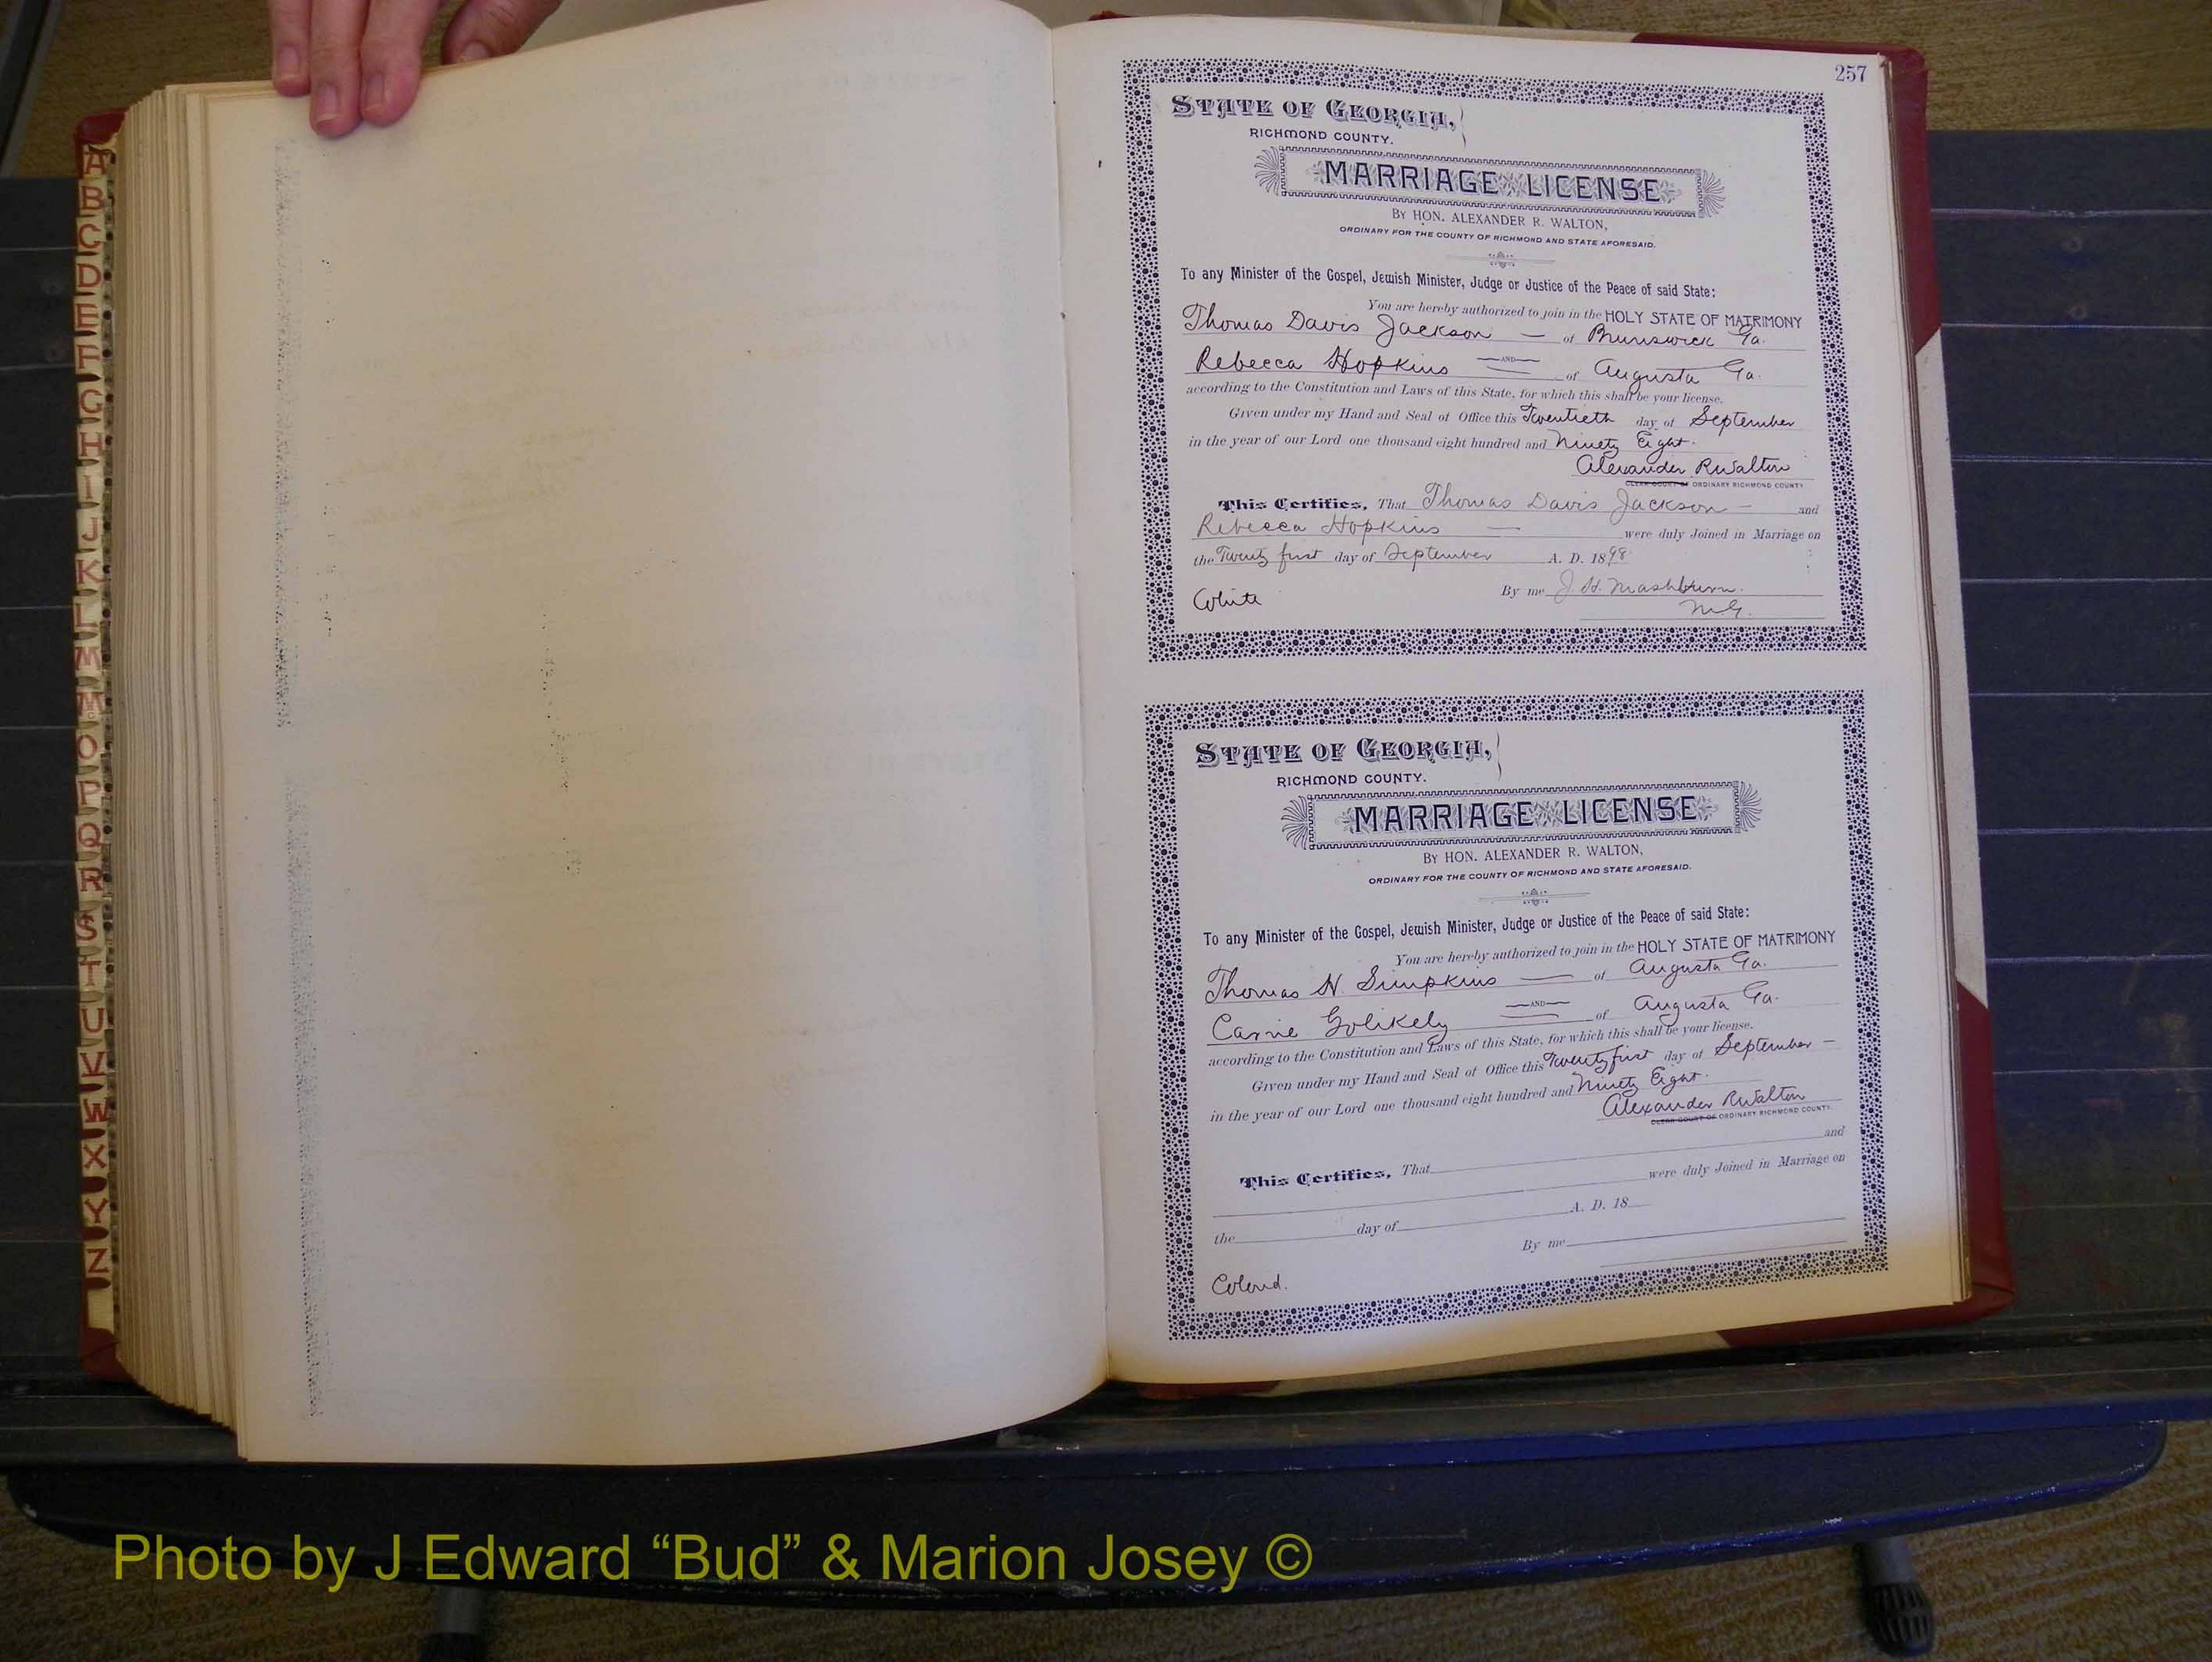 A
B
C
D
E
F
G
H
I
J
K
L
M
Mc
O
P
Q
R
S
T
U
V
W
X
Y
Z
257
STATE OF GEORGIA,
RICHMOND COUNTY.
MARRIAGE LICENSE
BY HON. ALEXANDER R. WALTON,
ORDINARY FOR THE COUNTY OF RICHMOND AND STATE AFORESAID.
To any Minister of the Gospel, Jewish Minister, Judge or Justice of the Peace of said State:
You are hereby authorized to join in the HOLY STATE OF MATRIMONY
Thomas Davis Jackson — of Brunswick Ga.
—AND—
Rebecca Hopkins of Augusta Ga.
according to the Constitution and Laws of this State, for which this shall be your license.
Given under my Hand and Seal of Office this Twentieth day of September
in the year of our Lord one thousand eight hundred and Ninety Eight.
Alexander R Walton
CLERK COURT OF ORDINARY RICHMOND COUNTY
This Certifies, That Thomas Davis Jackson — and
Rebecca Hopkins — were duly Joined in Marriage on
the Twenty first day of September A. D. 1898
By me J. H. Mashburn.
White M.G.
STATE OF GEORGIA,
RICHMOND COUNTY.
MARRIAGE LICENSE
BY HON. ALEXANDER R. WALTON,
ORDINARY FOR THE COUNTY OF RICHMOND AND STATE AFORESAID.
To any Minister of the Gospel, Jewish Minister, Judge or Justice of the Peace of said State:
You are hereby authorized to join in the HOLY STATE OF MATRIMONY
Thomas H. Simpkins — of Augusta Ga.
—AND—
Carrie Golikely of Augusta Ga.
according to the Constitution and Laws of this State, for which this shall be your license.
Given under my Hand and Seal of Office this Twenty first day of September —
in the year of our Lord one thousand eight hundred and Ninety Eight.
Alexander R Walton
CLERK COURT OF ORDINARY RICHMOND COUNTY.
This Certifies, That and
were duly Joined in Marriage on
the day of A. D. 18
By me
Colored.
Photo by J Edward “Bud” & Marion Josey ©